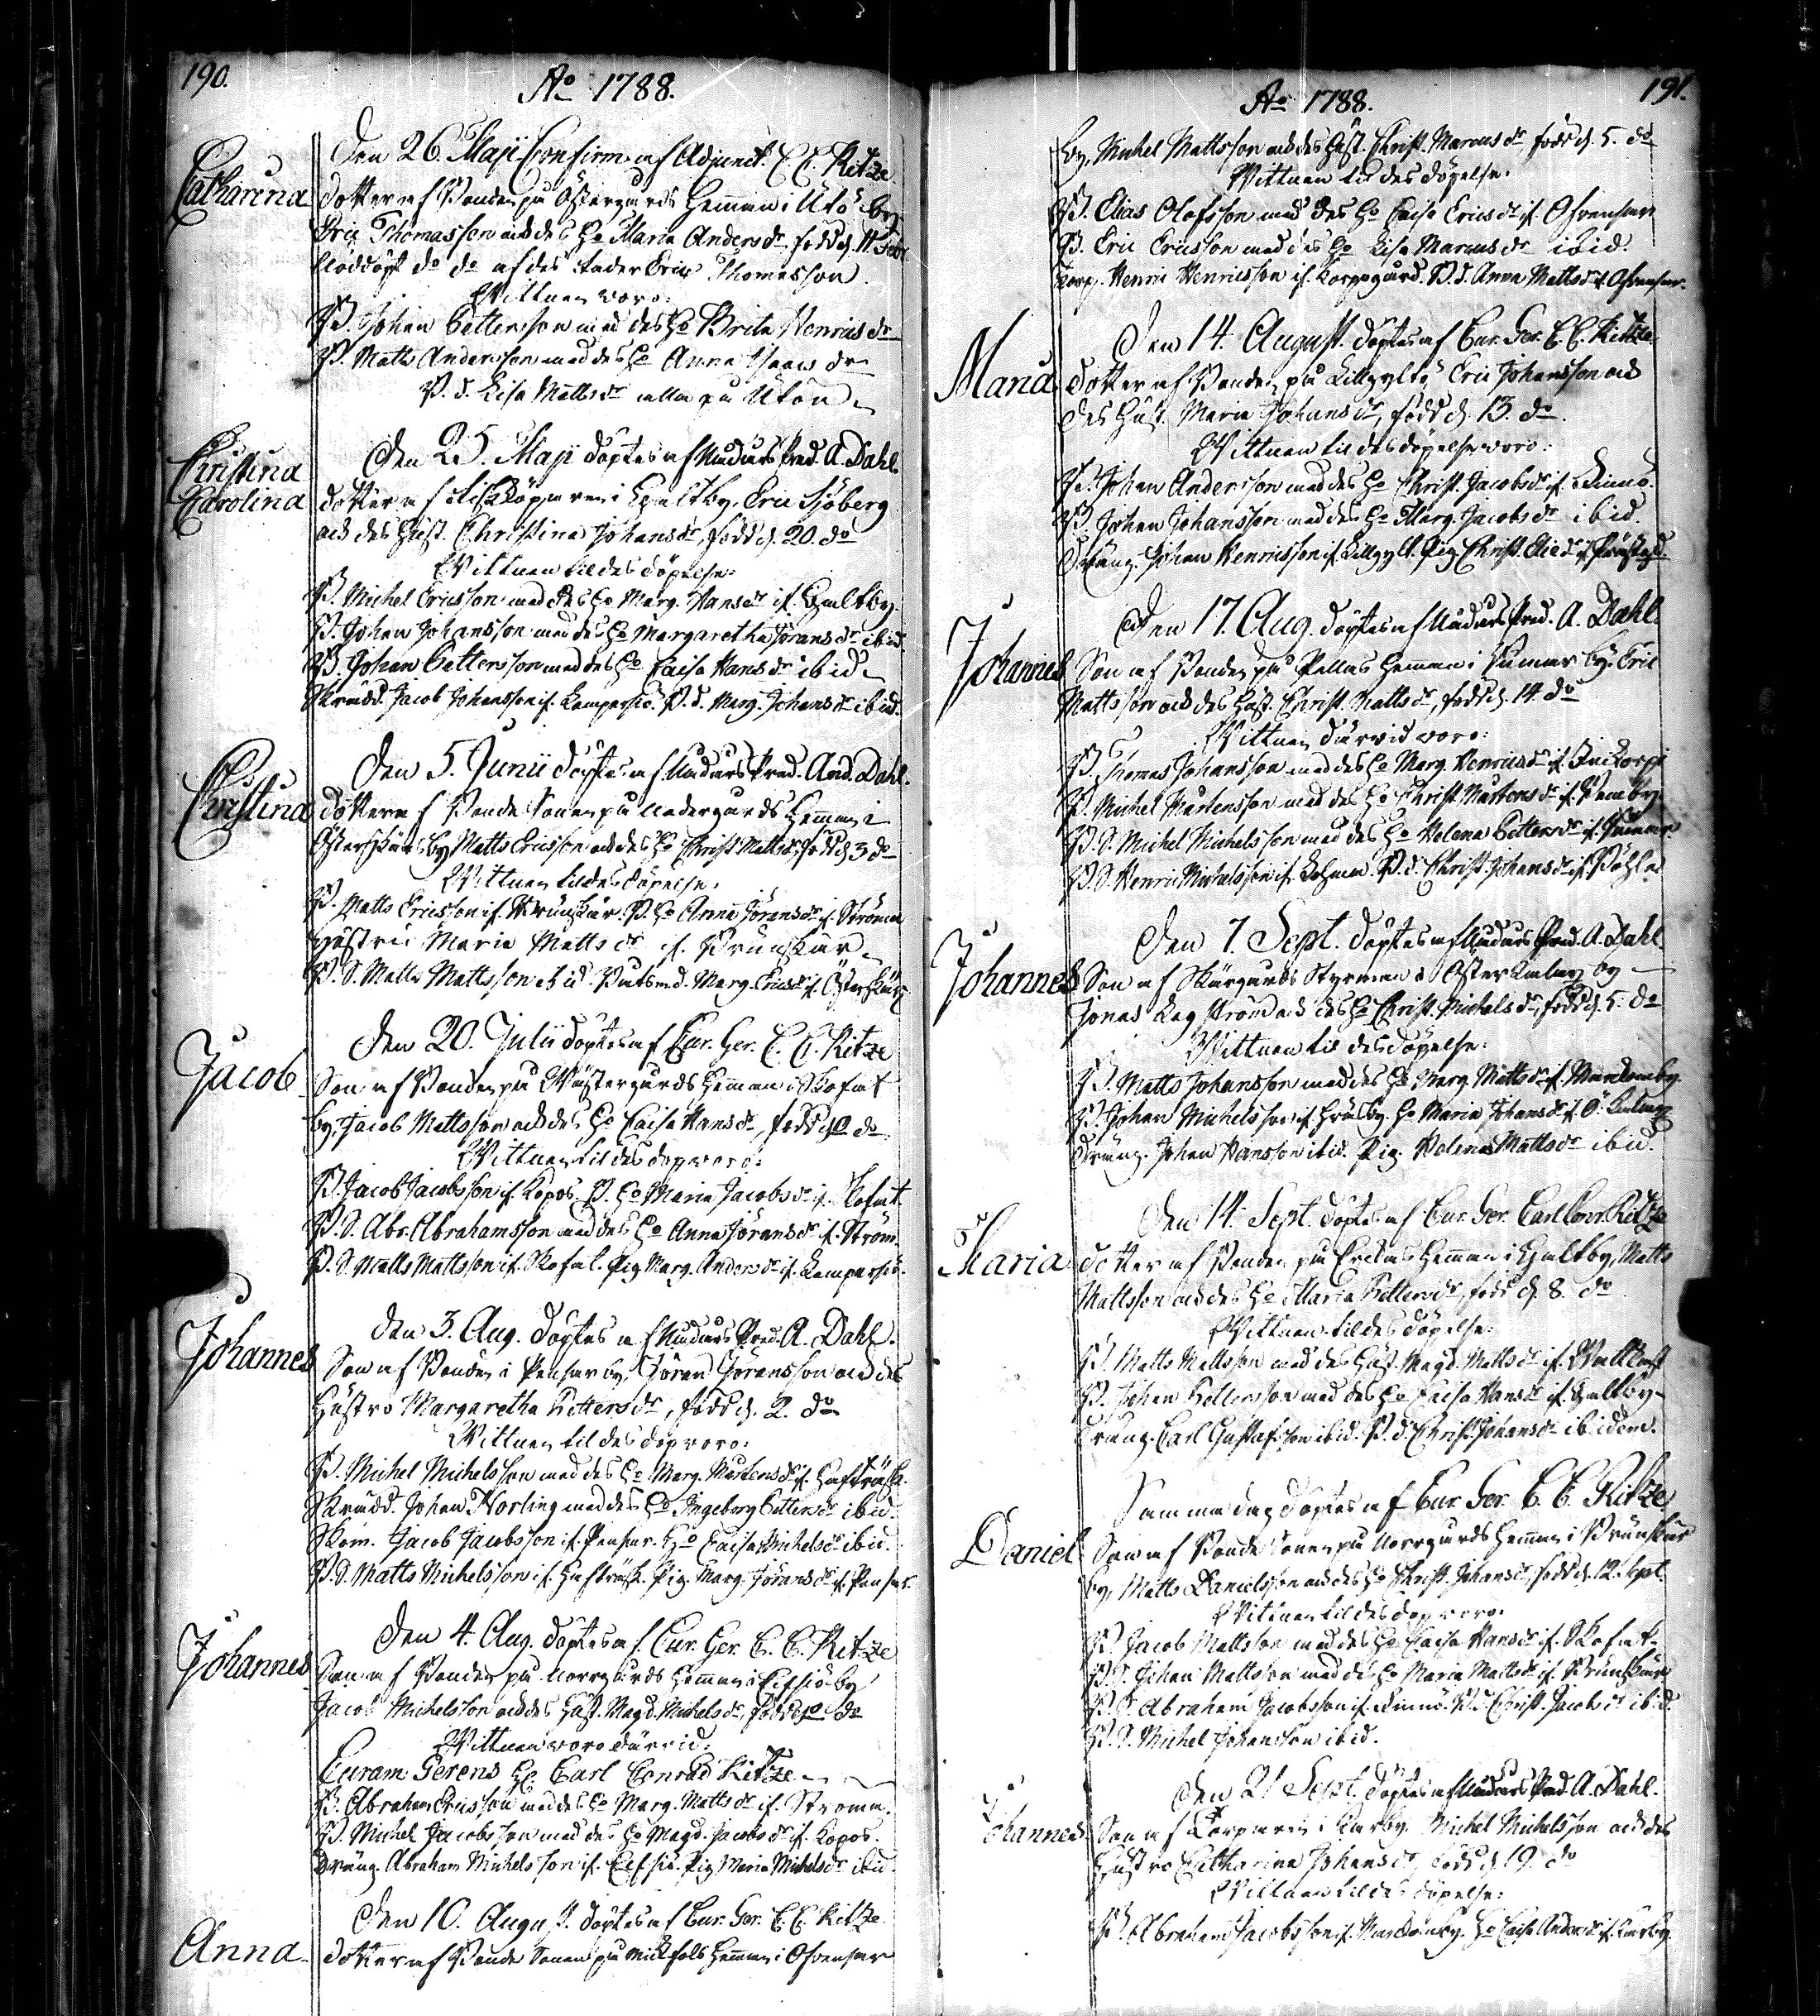 190.
Ao 1788.
Den 26. Maji Confirm. af Adjunct. C. C. Ritze
Catharina
dotter af Bonden på Östergårds Hemman i Utö by
Eric Thomasson och des Ho Maria Anders dr född d. 11
Nöddöpt do do af des fader Eric Thomasson
Wittnen voro:
B. Johan Pettersson med des Ho Brita Henrics dr
B. Matts Andersson med des Ho Anna Isaacs dr
B. d. Lisa Matts dr alla på Utön
Christina
Carolina
Den 25. Maji döptes af Pred. A. Dahl.
dotter af i Hjeltby, Eric Sjöberg
och des Hust. Christina Johans dr, född d. 20. do
Wittnen til des döpelse:
B. Michel Ericsson med des Ho Marg. Hans dr if. Hjeltby.
B. Johan Johansson med des Ho Margaretha Jörans dr ibid.
B. Johan Pettersson med des Ho Caisa Hans dr ibid
Skrädd. Jacob Johansson if. Kempersiö. B. d. Marg. Johans dr ibid.
Christina
Den 5. Junii döptes af Pred. And. Dahl.
dotter af Bonde Sonen på Nedergårds Hemman i
by Matts Ericsson och des Ho Christ. Matts dr, född d. 3 do
Wittnen til des döpelse:
B. Matts Ericsson if. B. Ho Anna Jörans dr if. Ströms
Hustru Maria Matts dr if.
B. S. Matts Mattsson ibid. Marg. Erics dr if.
Jacob
Den 20. Julii döptes af Cur. Ger. C. C. Ritze
Son af Bonden på Wästergårds Hemman i Skofat
by, Jacob Mattsson och des Ho Caisa Hans dr, född do
Wittnen til des dop voro:
B. Jacob Jacobsson if. Kopos. B. Ho Maria Jacobs dr if. Skofat.
B. S. Abr. Abrahamsson med des Ho Anna Jörans dr if. Ström.
B. S. Matts Mattsson if. Skofat. Pig. Marg. Anders dr if. Kempersiö.
Johannes
Den 3. Aug. döptes af Pred. A. Dahl.
Son af Bonden i Pensar by, Jören Jöransson och des
Hustro Margaretha Petters dr, född d. 2. do
Wittnen til des dop voro:
B. Michel Michelsson med des Ho Marg. Mårtens dr if.
Skrädd. Johan Norling med des Ho Ingeborg Petters dr ibid.
Skom. Jacob Jacobsson if. Pensar. Ho Caisa Michels dr ibid.
B. S. Matts Michelsson if. Pig. Marg. Jörans dr if. Pensar.
Johannes
Den 4. Aug. döptes af Cur. Ger. C. C. Ritze
Son af Bonden på Norrgårds Hemman i Elfsiö by
Jacob Michelsson och des Hust. Magd. Michels dr, född do
Wittnen voro därvid:
Curam Gerens H. Carl Conrad Ritze
B. Abraham Ericsson med des Ho Marg. Matts dr if. Strömm.
B. Michel Jacobsson med des Ho Magd. Jacobs dr if. Kopos.
Dräng. Abraham Michelsson if. Elfsiö. Pig. Maria Michels dr ibid.
Anna
Den 10. August. döptes af Cur. Ger. C. C. Ritze.
dotter af Bonde Sonen på Hemman i Ofvensor
191.
Ao 1788.
by, Michel Mattsson och des Hust. Christ. Marcus dr, född d. 5. do
Wittnen til des döpelse.
B. Elias Olofsson med des Ho Caisa Erics dr if. Ofvensor
B. Eric Ericsson med des Ho Lisa Marcus dr ibid.
Torp. Henric Henricsson if. Korpogård. B. d. Anna Matts dr if. Ofvensor.
Maria
Den 14. August. döptes af Cur. Ger. C. C. Ritze
dotter af Bonden på Lillgyltö Eric Johansson och
des Hust. Maria Johans dr, född d. 13. do
Wittnen til des döpelse voro:
B. Johan Andersson med des Ho Christ. Jacobs dr if.
B. Johan Johansson med des Ho Marg. Jacobs dr ibid.
Dräng. Johan Henricsson if. Lillgylt. Pig. Christ. dr if.
Johannes
Den 17. Aug. döptes af Pred. A. Dahl.
Son af Bonden på Pellas Hemman i Humar by, Eric
Mattsson och des Hust. Christ. Matts dr, född d. 14. do
Wittnen därvid voro:
B. Thomas Johansson med des Ho Marg. Henrics dr if.
B. Michel Mårtensson med des Ho Christ. Mårtens dr if.
B. S. Michel Michelsson med des Ho Helena Petters dr if. Humar
B. S. Henric Michelsson if. B. d. Christ. Johans dr if.
Johannes
Den 7. Sept. döptes af Pred. A. Dahl
Son af Skärgårds Styrman i Österkalax by
Jonas Lagström och des Ho Christ. Michels dr, född d. 5. do
Wittnen til des döpelse:
B. Matts Johansson med des Ho Marg. Matts dr if.
B. Johan Michelsson if. Ho Maria Johans dr if. Ö. Kalax
Dräng. Johan Hansson ibid. Pig. Helena Matts dr ibid.
Maria
Den 14. Sept. döptes af Cur. Ger. Carl Conr. Ritze
dotter af Bonden på Erikas Hemman i Hjeltby, Matts
Mattsson och des Ho Maria Petters dr, född d. 8. do
Wittnen til des döpelse:
B. Matts Mattsson med des Hust. Magd. Matts dr if.
B. Johan Pettersson med des Ho Caisa Hans dr if. Hjeltby
Dräng. Carl Gustafsson ibid. B. d. Christ. Johans dr ibidem.
Daniel
Samma dag döptes af Cur. Ger. C. C. Ritze
Son af Bonde Sonen på Norrgårds Hemman i
by, Matts Danielsson och des Ho Christ. Johans dr, född d. 12. Sept.
Wittnen til des dop voro:
B. Jacob Mattsson med des Ho Caisa Hans dr if. Skofat.
B. S. Johan Mattsson med des Ho Maria Matts dr if.
B. S. Abraham Jacobsson if. B. d. Christ. Jacobs dr ibid.
B. S. Michel Johansson ibid.
Johannes
Den 21 Sept. döptes af Pred. A. Dahl.
Son af Torparen i Kurby Michel Michelsson och des
Hustro Catharina Johans dr, född d. 19. do
Wittnen til des döpelse:
B. Abraham Jacobsson if. Ho Caisa Anders dr if. Kurby.